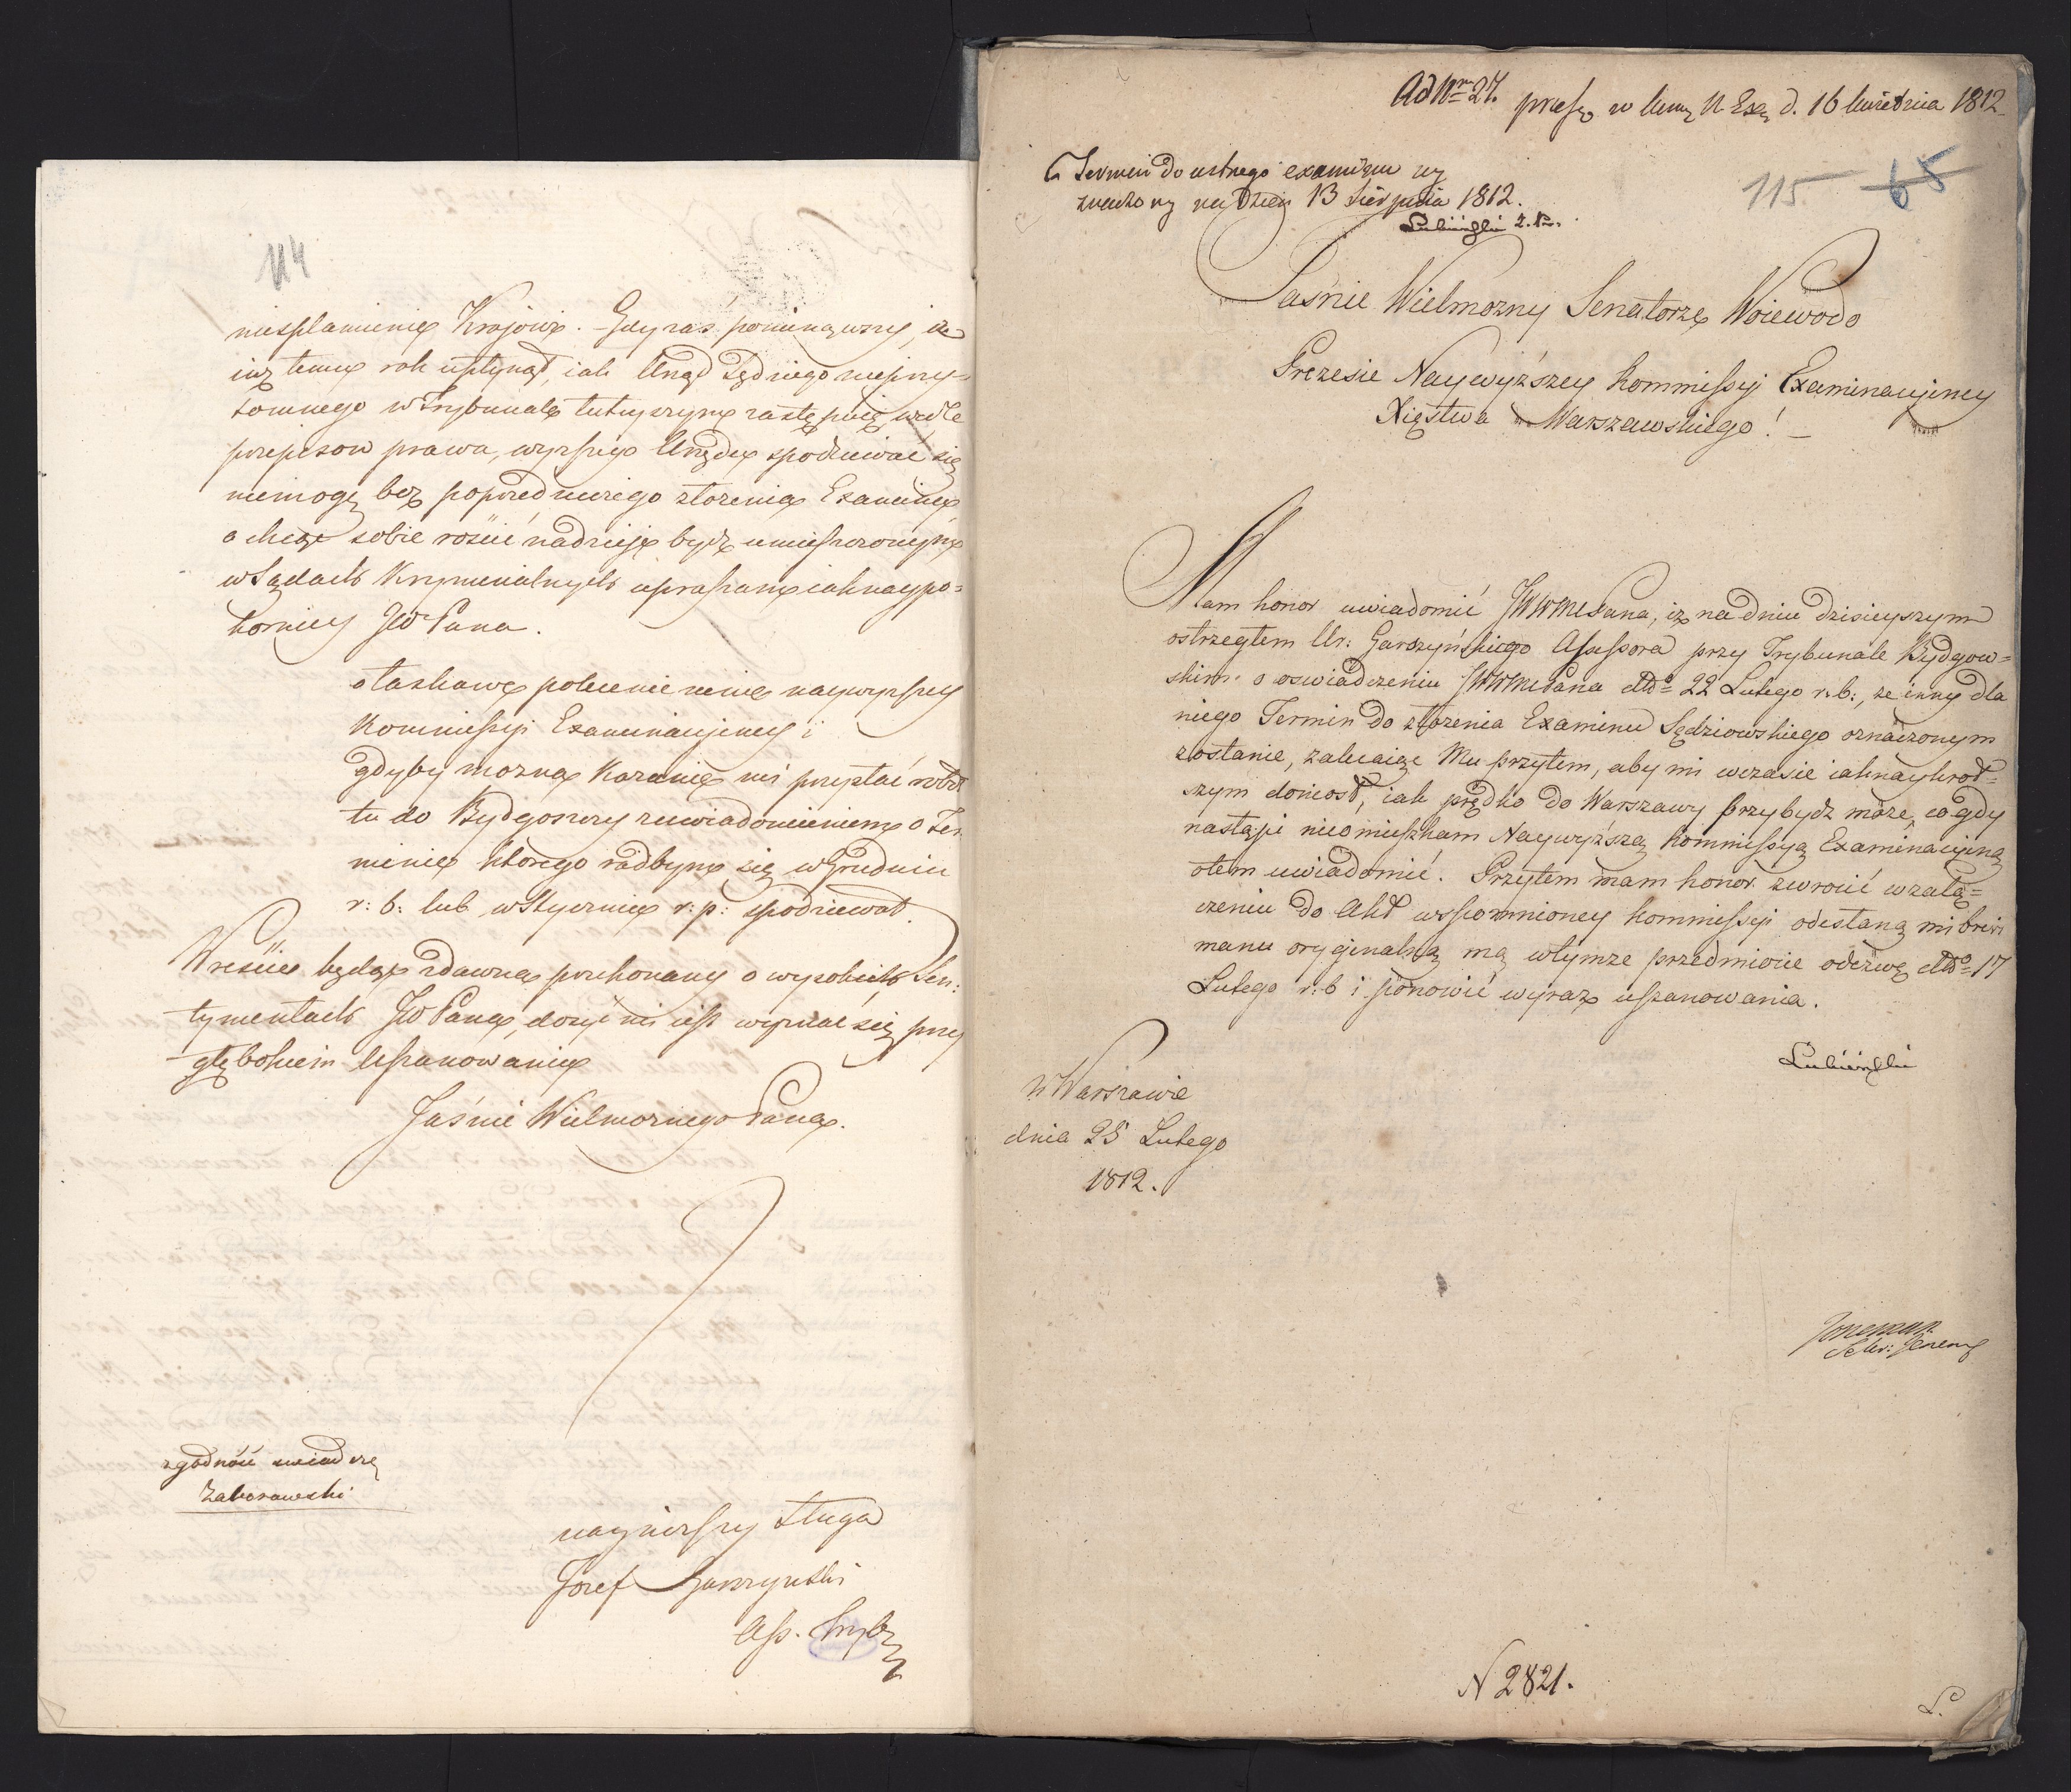 114
niesplamienie Krajowi. Gdyras pominąwszy, że
iuż temu rok upłynął, iak Urząd Sędziego nieprzy=
tomnego w Trybunale tutejszym zastępuię, wedle
przepisow prawa, wyższego Urzędu spodziewać się
niemogę bez poprzedniczego złożenia Examinu
a chcąc sobie rościć nadzieję bydź umieszczonym
w Sądach Kryminalnych upraszam iaknaypo=
korniey JW Pana.
o łaskawe polecenie mnie naywyższey
Kommissyi Examinacyiney i
gdyby można kazanie mi przysłać
tu do Bydgoszczy z uwiadomieniem o Ter
minie ktorego radbym się w Grudniu
r: b: lub w Styczniu r: p: spodziewał.
Wreście będąc zdawna przekonany o wysokich Sen:
tymentach JW Pana, dosyć mi iest wyznać się przy
głębokiem Uszanowaniu
Jaśnie Wielmożnego Pana.
zgodność świadczę
Zaborowski
nayniższy Sługa
Jozef Garszynski
Ass. Tryb.
Ad Nrm 27. pres. w Kom. N. Ex. d. 16 Kwietnia 1812
Termin do ustnego examinu wy
znaczony na Dzień 13 Sierpnia 1812.
Lubieński
115 65
Jaśnie Wielmożny Senatorze Woiewodo
Prezesie Naywyższey Kommissyi Examinacyiney
Xięstwa Warszawskiego!
Mam honor uwiadomić JWWMCPana, iż na dniu dzisieyszym
ostrzegłem Ur: Garszyńskiego Assessora przy Trybunale Bydgow=
skim o oswiadczeniu JWWMCPana ddo 22 Lutego r: b:, że inny dla
niego Termin do złożenia Examinu Sędziowskiego oznaczonym
zostanie, zalecaiąc Mu przytem, aby mi w czasie iaknaykrot=
szym doniosł, iak prędko do Warszawy przybydź może, co gdy
nastąpi nieomieszkam Naywyższą Kommissyą Examinacyiną
otem uwiadomić. Przytem mam honor zwrocić w załą=
czeniu do Akt wspomnioney Kommissyi odesłaną mi brevi
manu oryginalną mą w tymże przedmiocie odezwę ddo 17
Lutego r: b i ponowić wyraz uszanowania.
Lubieński
w Warszawie
dnia 25 Lutego
1812.
Sekr: Jeneny
N 2821.
L.